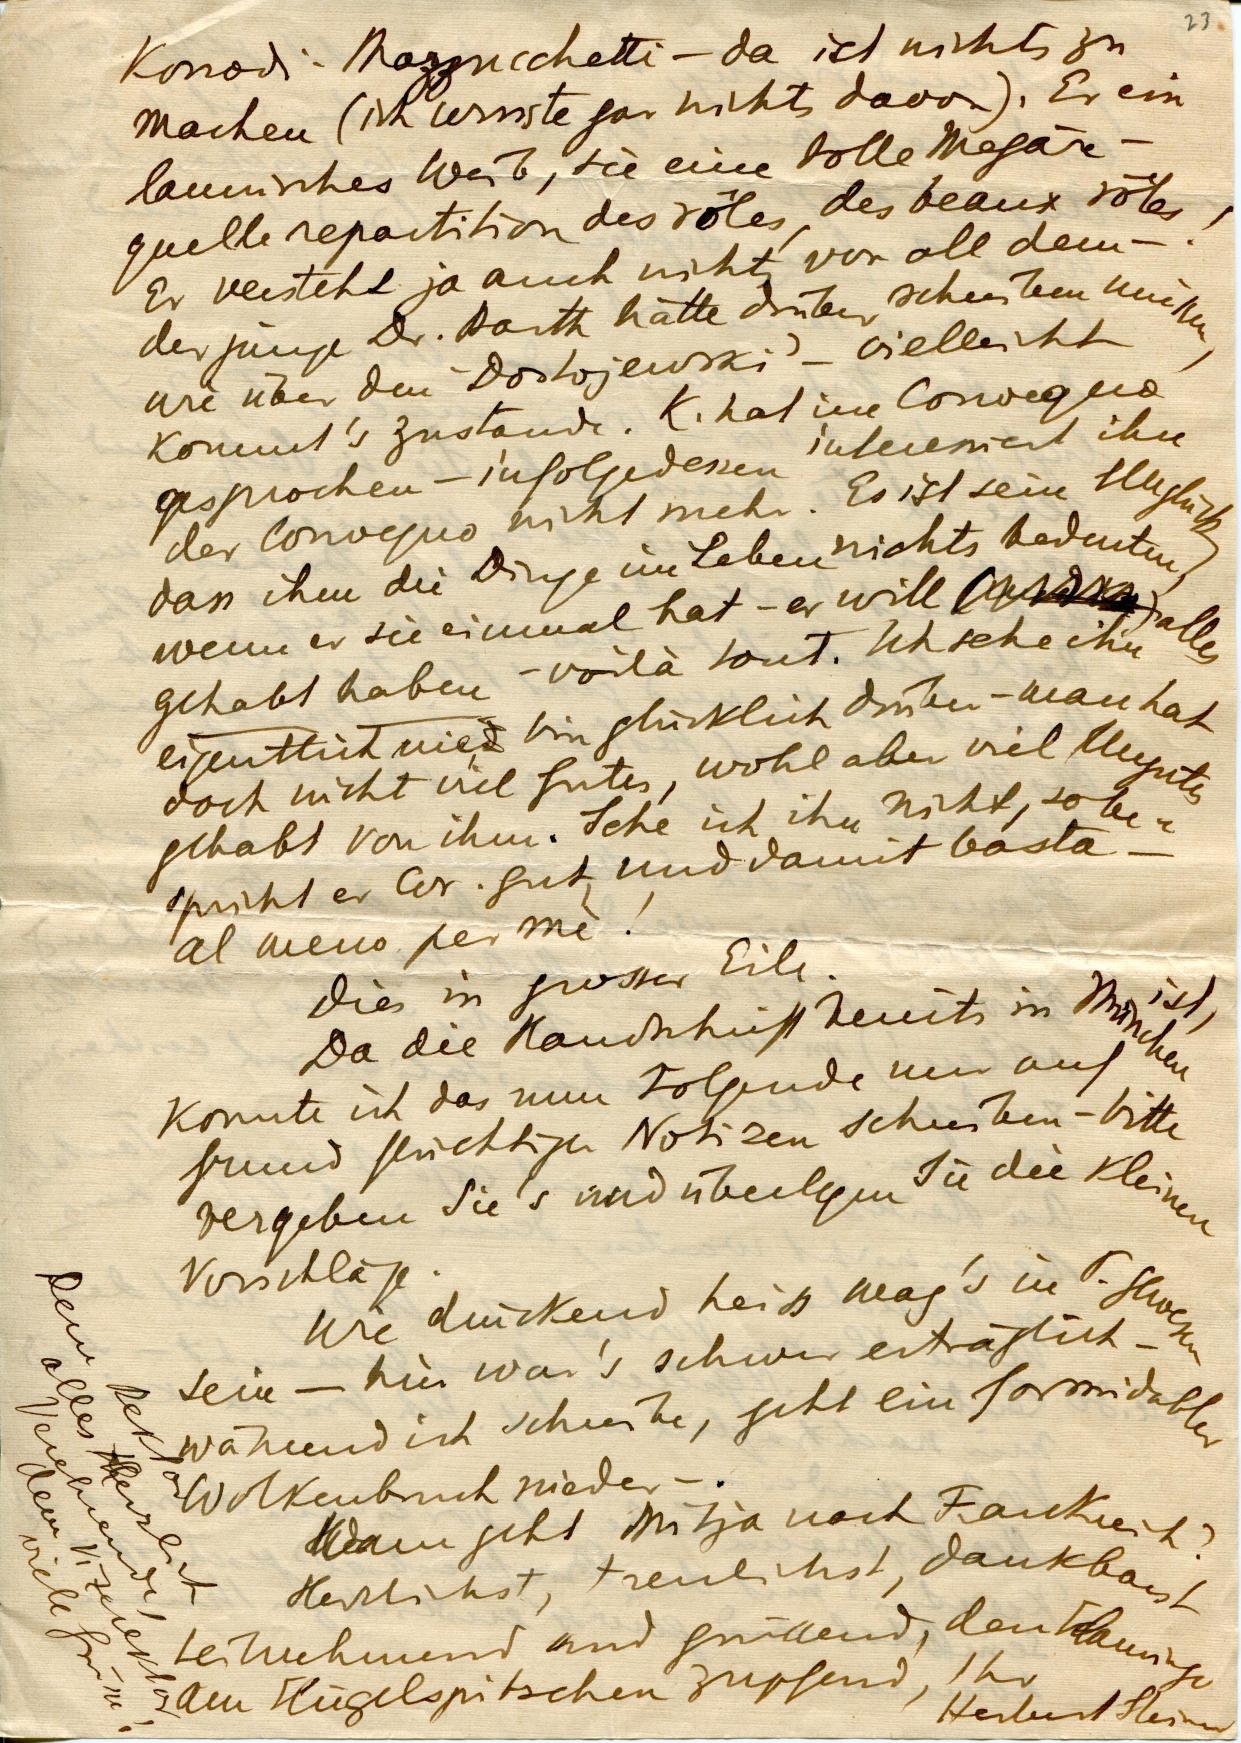 23
Korrodi - Mazzucchetti – da ist nichts zu
machen (ich wusste gar nichts davon). Er ein
launisches Weib, sie eine tolle Megäre –
quelle repartition des rôles, des beaux rôles!
Er versteht ja auch nichts von all dem –.
der junge Dr. Barth hätte drüber schreiben müssen,
wie über den Dostojewski – vielleicht
kommt's zustande. K. hat im Convegno
gesprochen – infolgedessen interessiert ihn
der Convegno nicht mehr. Es ist sein Unglück,
dass ihm die Dinge im Leben nichts bedeuten,
wenn er sie einmal hat – er will alles
gehabt haben – voilà tout. Ich sehe ihn
eigentlich nie, bin glücklich drüber – man hat
doch nicht viel Gutes, wohl aber viel Ungutes
gehabt von ihm. Sehe ich ihn nicht, so be-
spricht er Cor. gut, und damit basta –
al meno per me!
Dies in grosser Eile.
Da die Handschrift bereits in München ist,
konnte ich das nun Folgende nur auf
Grund flüchtiger Notizen schreiben – bitte
vergeben Sie's und überlegen Sie die kleinen
Vorschläge.
Wie drückend heiss mag's in
sein – hier war's schwer erträglich –
während ich schreibe, geht ein formidabler
Wolkenbruch nieder –.
Wann geht Mitja nach Frankreich?
Herzlichst, treulichst, dankbarst
teilnehmend und grüssend, den Flamingo
am Flügelspitzchen zupfend, Ihr
Herbert Steiner
Dem Rektor
alles Herzlich
Verehrende,
dem Vizerektor
viele Grüsse!